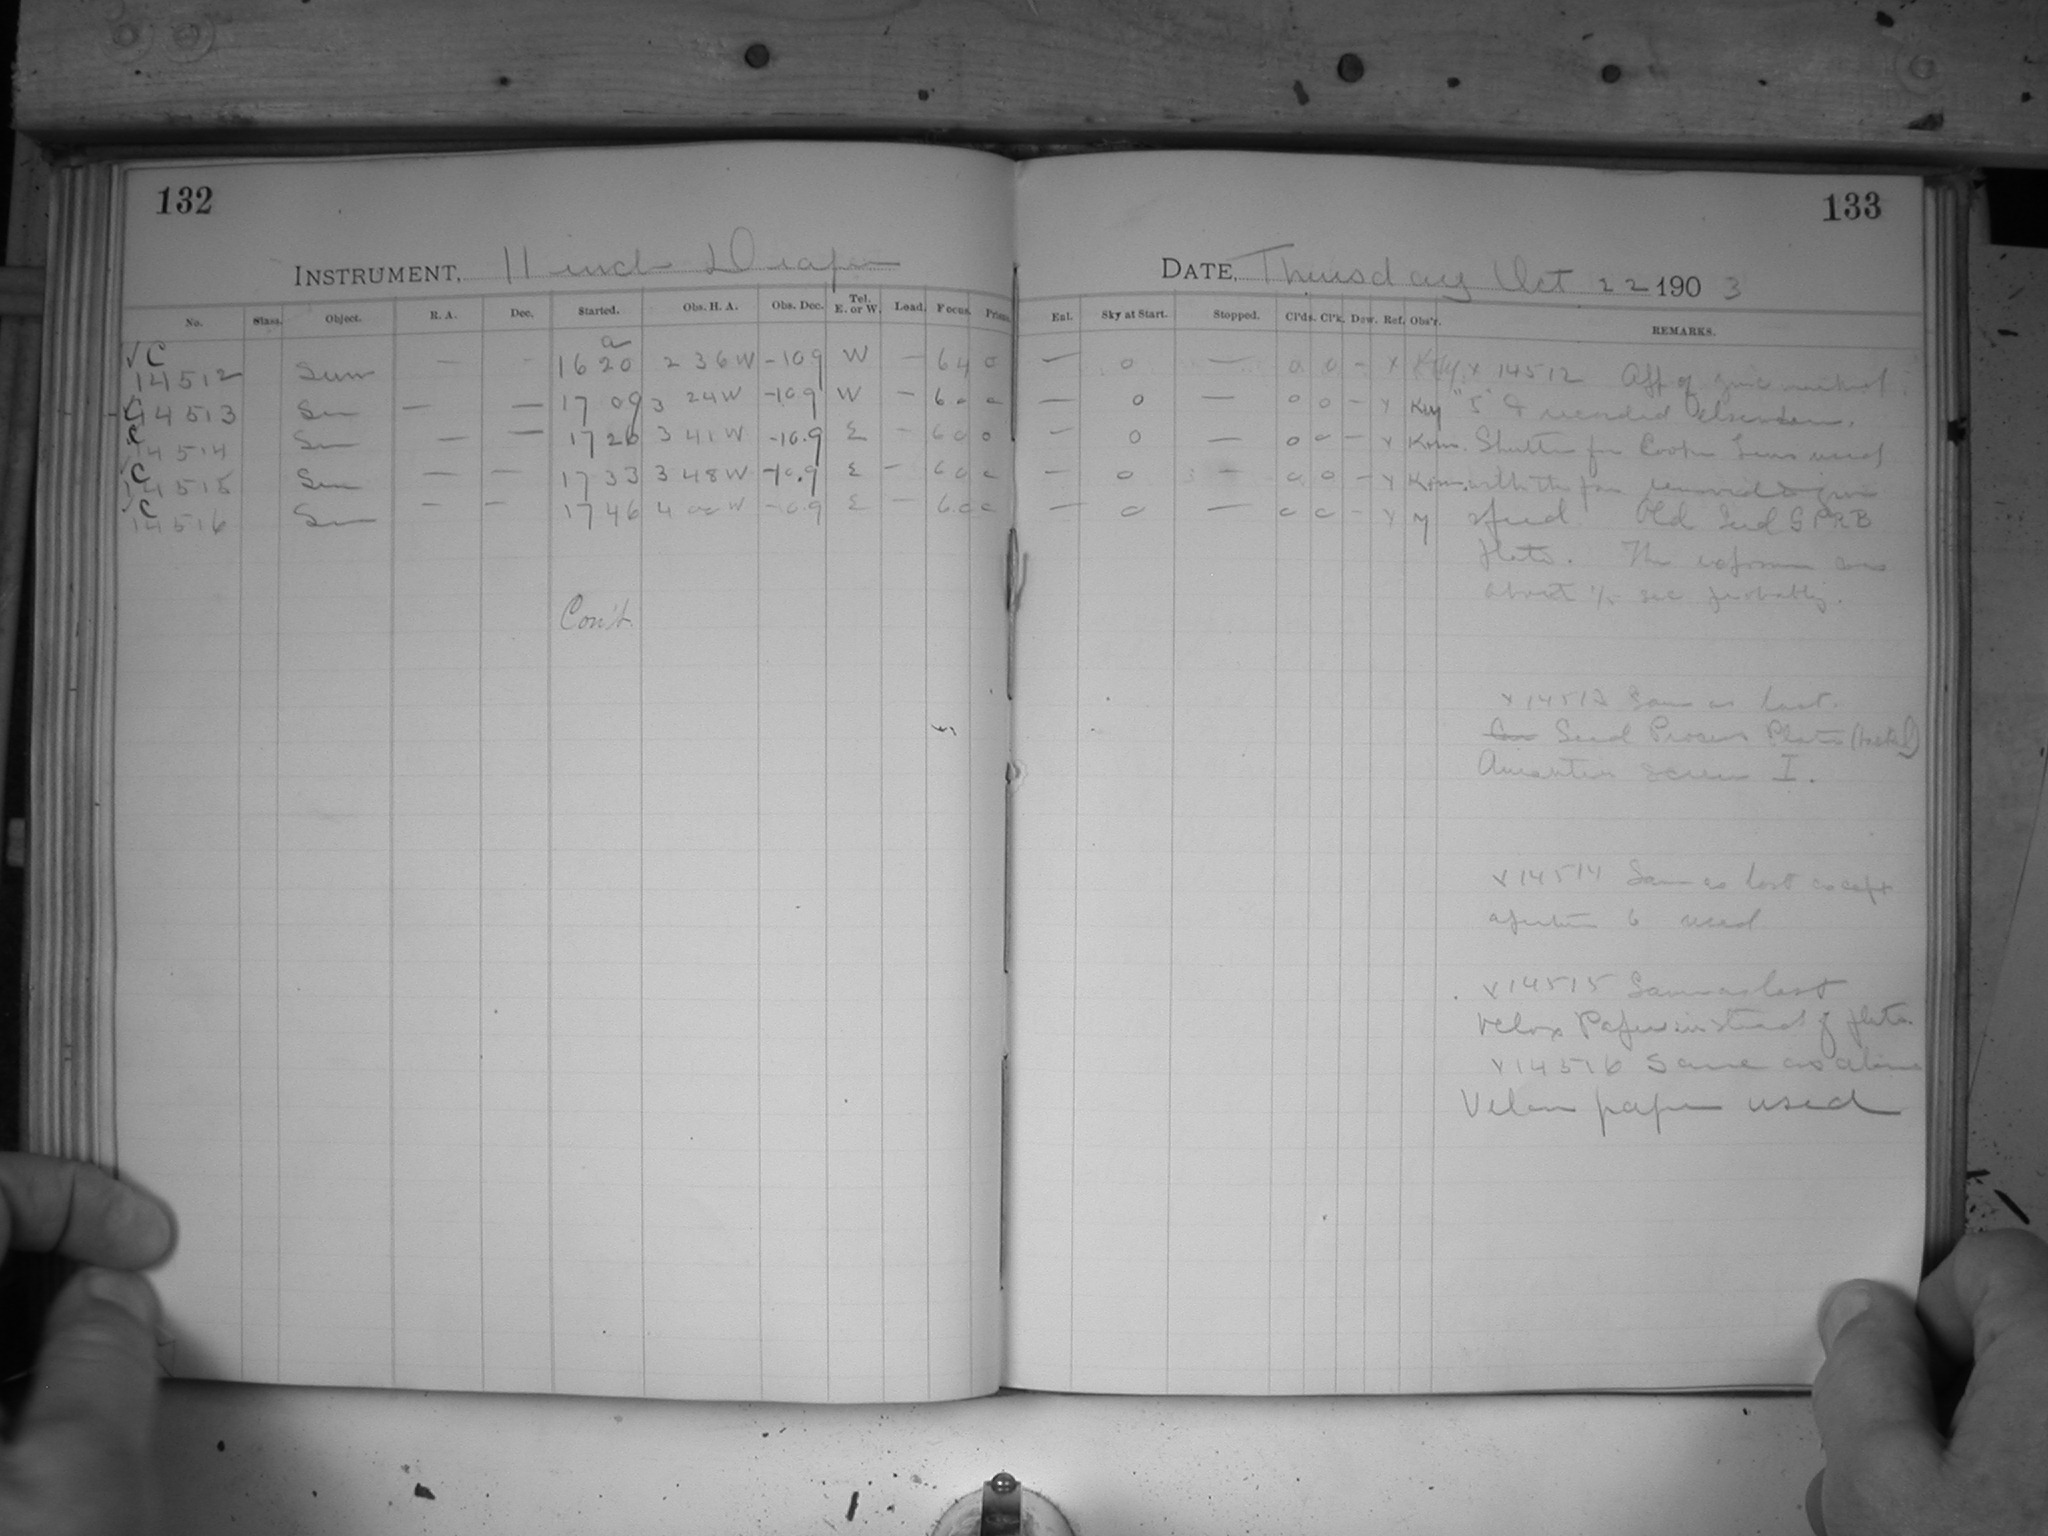 132
133
INSTRUMENT, 11 inch Draper
DATE, Thursday Oct 22 1903
No. Class. Object. R. A. Dec. Started. Obs. H. A. Obs. Dec. Tel. E. or W. Load. Focus. Prisms. Enl. Sky at Start. Stopped. Cl'ds. Cl'k. Dew. Ref. Obs'r. REMARKS.
√ C 14512 Sun — - 16 20 2 36 W -10.9 W — 6.4 0 — 0 — 0 0 - x x 14512
√ C 14513 Sun — — 17 09 3 24 W -10.9 W — 6.0 0 — 0 — 0 0 - x & recorded
√ C 14514 Sun — — 17 26 3 41 W -10.9 E — 6.0 0 — 0 — 0 0 - x Shutter for Cooke Lens used
√ C 14515 Sun — — 17 33 3 48 W -10.9 E — 6.0 0 — 0 — 0 0 - x
√ C 14516 Sun — — 17 46 4 00 W -10.9 E — 6.0 0 — 0 — 0 0 - x M speed Old Seed
plate. The
about sec probably.
Con't.
x 14513 Same as last.
Seed Process Plate
Screen I.
x 14514 Same as last except
aperture 6 used
x 14515 Same as last
Velox Paper instead of plate.
x 14516 Same as above
Velox paper used